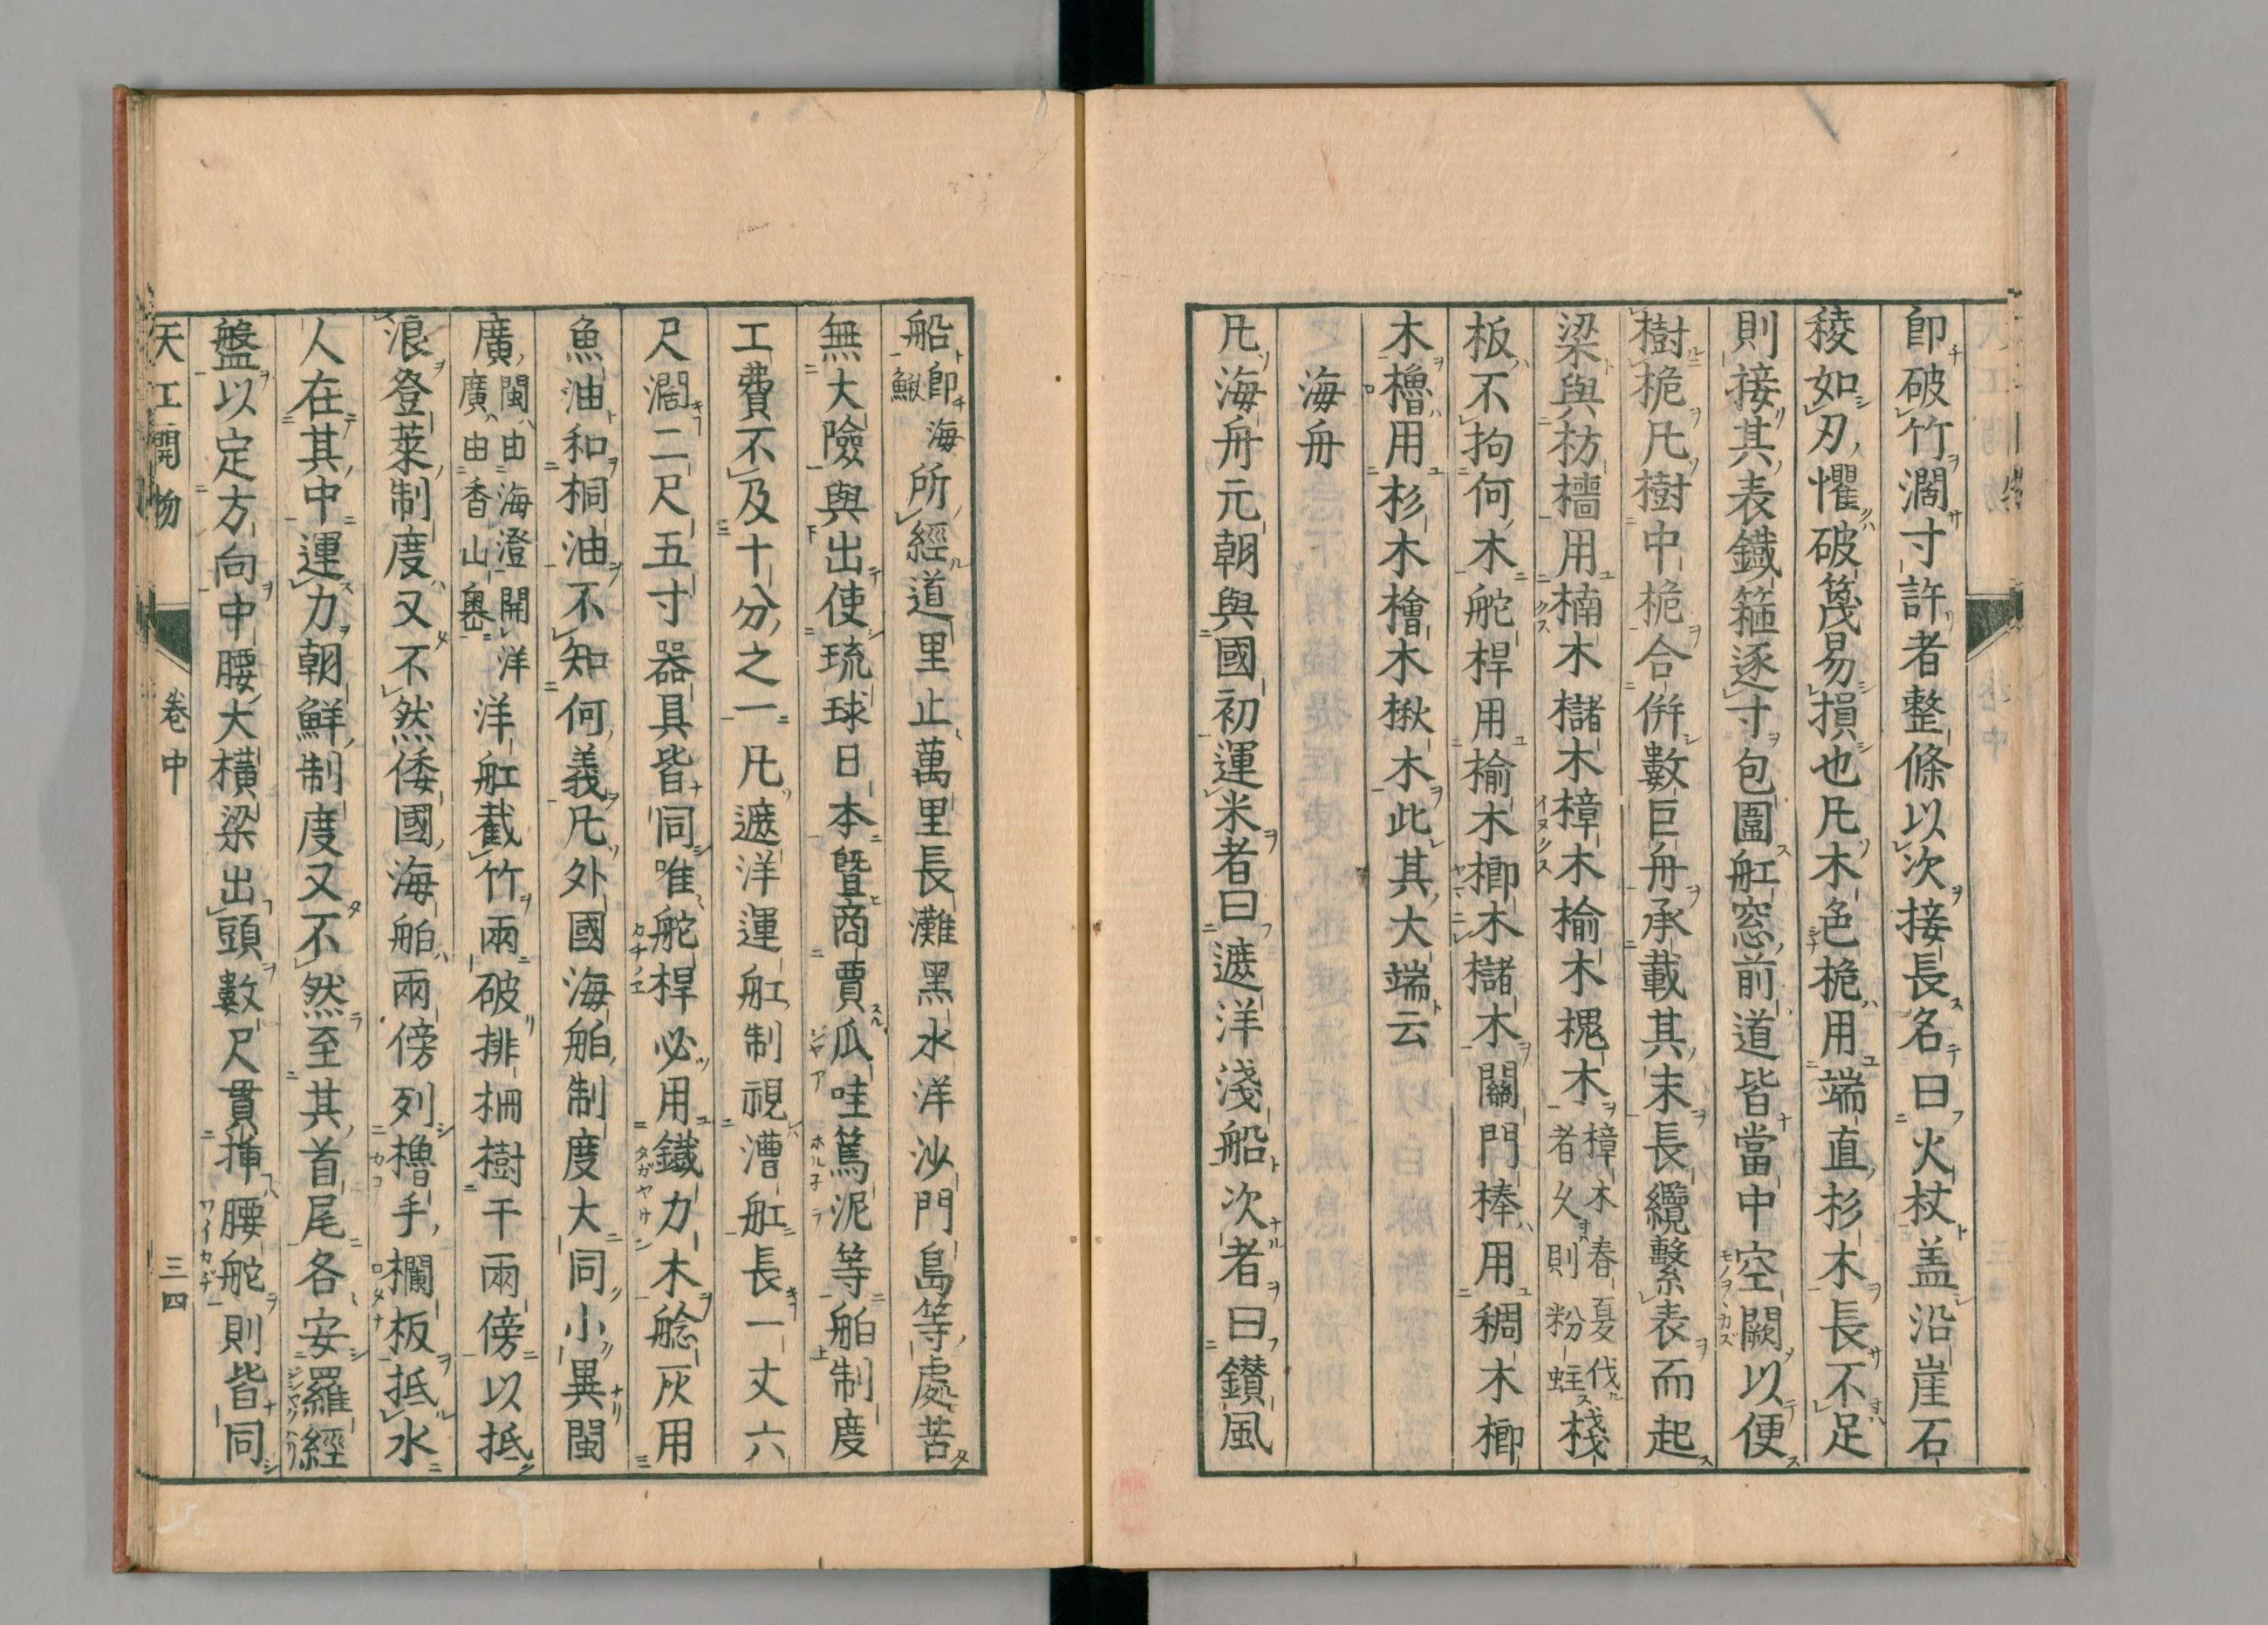 卽破竹濶寸許者整條以次接長名曰火杖盖沿崖石
稜如刃懼破篾易損也凡木色桅用端直杉木長不足
則接其表鐵箍逐寸包圍舡窓前道皆當中空闕以便
樹桅凡樹中桅合併數巨舟承載其末長纜繫表而起
梁與枋檣用楠木櫧木樟木榆木槐木樟木春夏伐者久則粉蛀棧
板不拘何木舵桿用榆木榔木櫧木關門棒用稠木榔
木櫓用杉木檜木楸木此其大端云
海舟
凡海舟元朝與國初運米者曰遮洋淺船次者曰鑽風
船卽海鰍所經道里止萬里長灘黑水洋沙門島等處苦
無大險與出使琉球日本曁商賈瓜哇篤泥等舶制度
工費不及十分之一凡遮洋運舡制視漕舡長一丈六
尺濶二尺五寸器具皆同唯舵桿必用鐵力木艌灰用
魚油和桐油不知何義凡外國海舶制度大同小異閩
廣閩由海澄開洋廣由香山嶴洋舡截竹兩破排柵樹干兩傍以抵
浪登萊制度又不然倭國海舶兩傍列櫓手欄板抵水
人在其中運力朝鮮制度又不然至其首尾各安羅經
盤以定方向中腰大橫梁出頭數尺貫揷腰舵則皆同
天工開物 卷中 三四